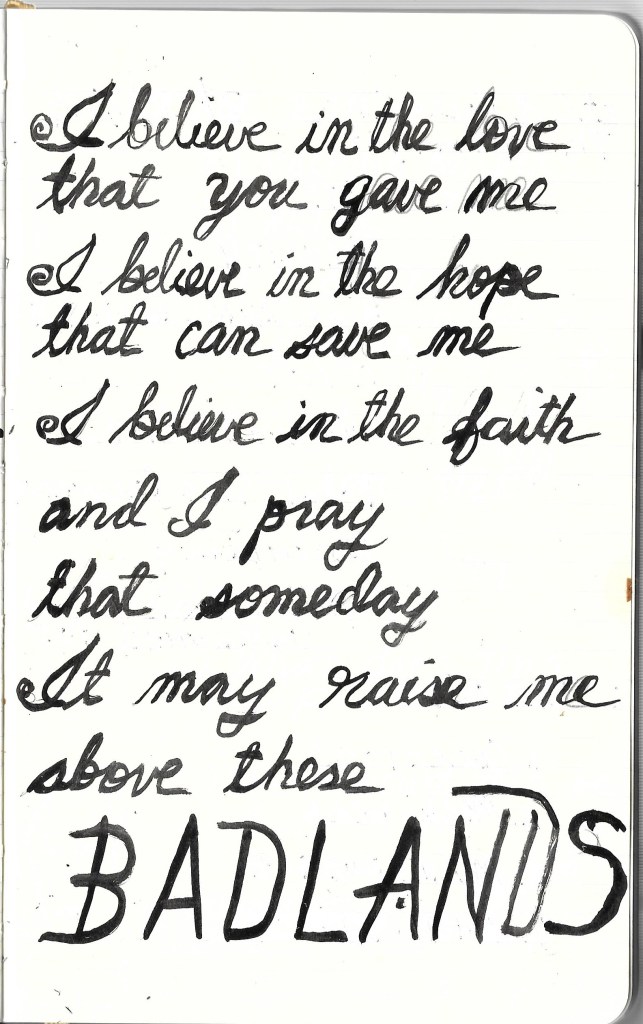 I believe in the love
that you gave me
I believe in the hope
that can save me
I believe in the faith
and I pray
that someday
It may raise me
above these
BADLANDS